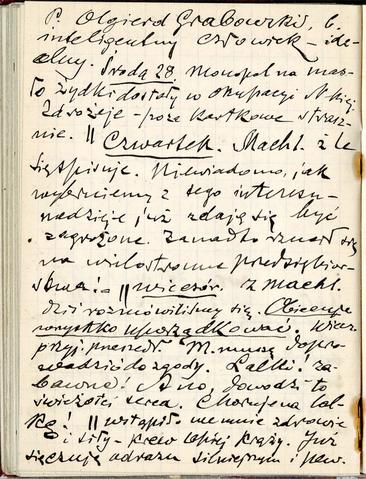 P. Olgierd Grabowski, b.
inteligentny człowiek – ide-
alny. Środa 28. Monopol na mas-
ło Żydki dostały w okupacji
zdrożeje – poza kartkowe strasz-
nie. || Czwartek. Macht. źle
się spisuje. Niewiadomo, jak
wybrniemy z tego interesu –
nadzieje już zdają się być
zagrożone. Zanadto rzucił się
na wielostronne przedsiębior-
stwa. – || wieczór. Z Macht.
dziś rozmówiliśmy się. Obiecuje
wszystko uporządkować. Wiecz.
przyj. poszedł M. muszę dopro-
wadzić do zgody. Lalki! za-
bawne! Ano, dowodzi to
świeżości serca. Choruje na lal-
kę! || wstąpiło we mnie zdrowie
i siły – krew lepiej krąży. Już
się czuję odrazu silniejszym i pew.